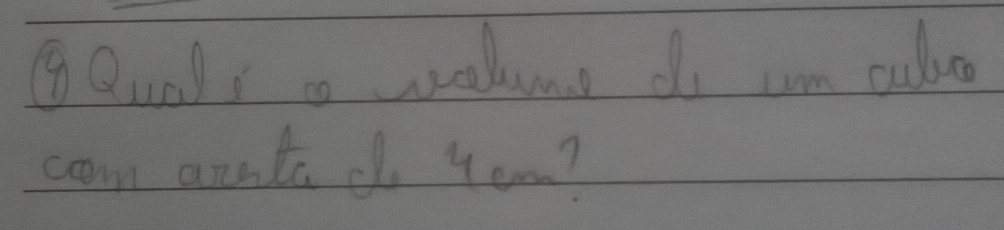 9 Qual é o volume de um cubo
com aresta de 4 cm?